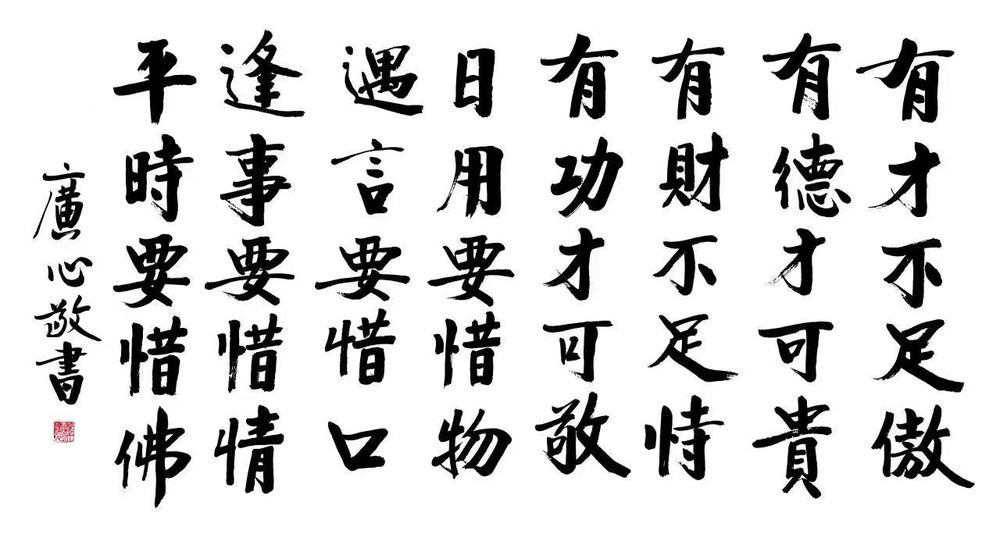 有才不足傲
有德才可貴
有財不足恃
有功才可敬
日用要惜物
遇言要惜口
逢事要惜情
平時要惜佛
廣心敬書